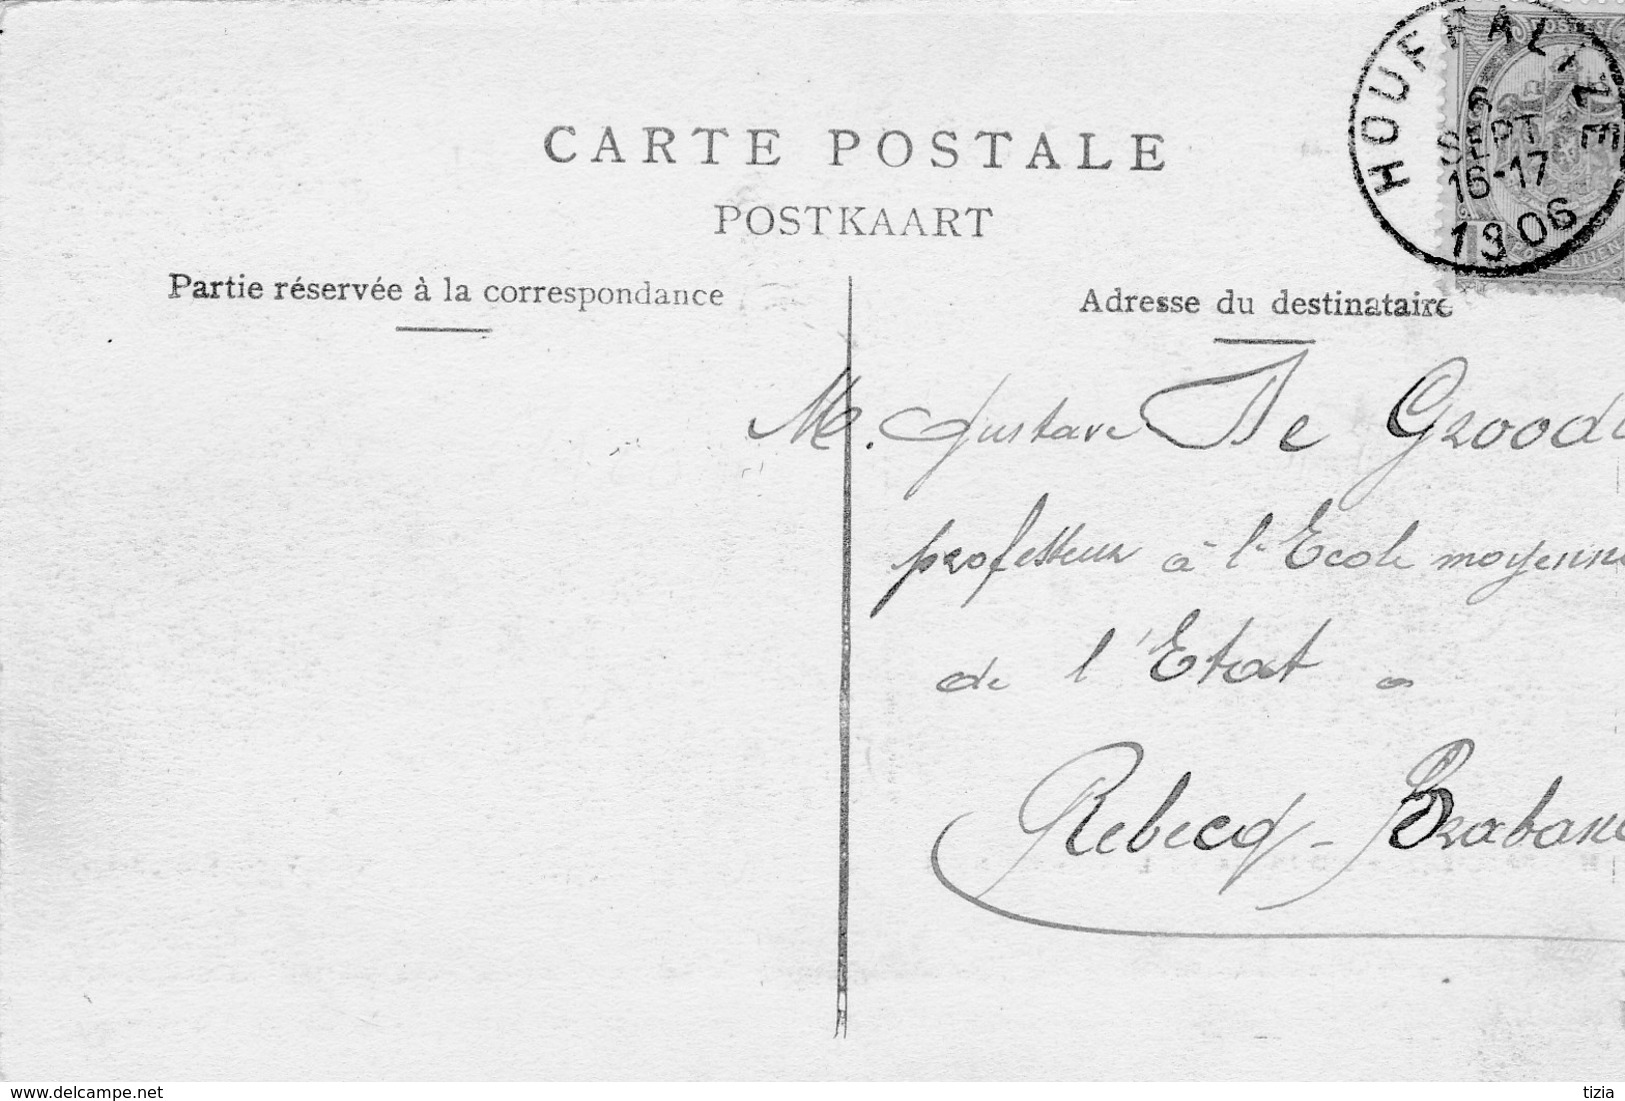 CARTE POSTALE
POSTKAART
HOUFFALIZE
6
SEPT
16-17
1906
Partie réservée à la correspondance
Adresse du destinataire
M. Gustave De Groodt
professeur à l'Ecole moyenne
de l'Etat -
Rebecq - Braban
www.delcampe.net
tizia